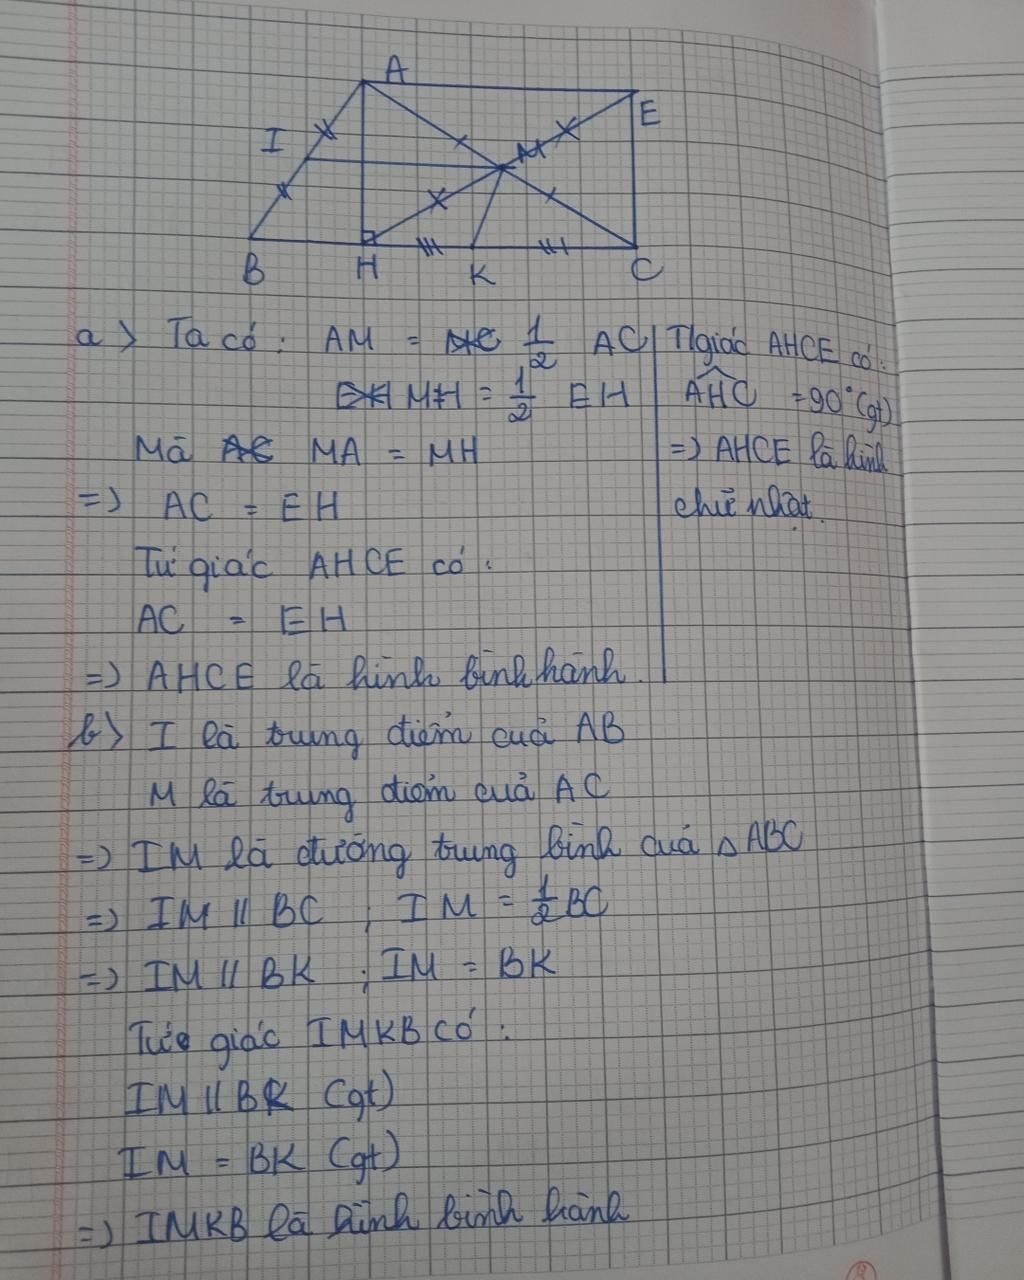 A
E
I
M
B
H
K
C
a) Ta có: AM = 1/2 AC
MH = 1/2 EH
Mà MA = MH
=> AC = EH
Tứ giác AHCE có:
AC = EH
=> AHCE là hình bình hành.
T/giác AHCE có:
AHC = 90° (gt)
=> AHCE là hình
chữ nhật.
b) I là trung điểm của AB
M là trung điểm của AC
=> IM là đường trung bình của △ABC
=> IM // BC ; IM = 1/2 BC
=> IM // BK ; IM = BK
Tứ giác IMKB có:
IM // BK (gt)
IM = BK (gt)
=> IMKB là hình bình hành